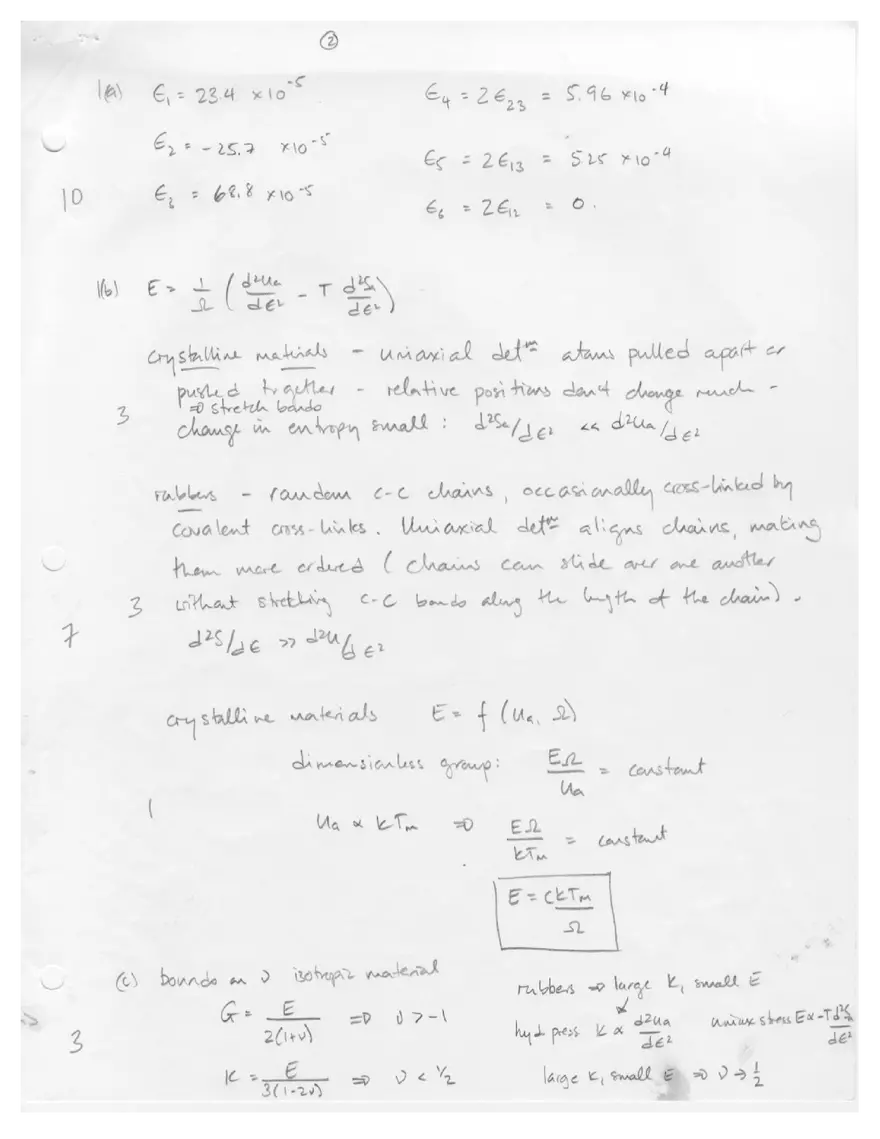 ②
1(a) ϵ₁ = 23.4 ×10⁻⁵   ϵ₄ = 2ϵ₂₃ = 5.96 ×10⁻⁴
ϵ₂ = -25.7 ×10⁻⁵   ϵ₅ = 2ϵ₁₃ = 5.25 ×10⁻⁴
10   ϵ₃ = 68.8 ×10⁻⁵   ϵ₆ = 2ϵ₁₂ = 0.
1(b) E = 1/Ω (d²Ua/dϵ² - T d²Sa/dϵ²)
crystalline materials - uniaxial defᵐⁿ atoms pulled apart or
pushed together - relative positions don't change much -
⇒ stretch bonds
3   change in entropy small : d²Sa/dϵ² << d²Ua/dϵ²
rubbers - random c-c chains, occasionally cross-linked by
covalent cross-links. Uniaxial defᵐⁿ aligns chains, making
them more ordered (chains can slide over one another
3   without stretching c-c bonds along the length of the chain).
7   d²S/dϵ >> d²U/dϵ²
crystalline materials   E = f (Ua, Ω)
dimensionless group:   EΩ/Ua = constant
1   Ua ∝ kTm ⇒ EΩ/kTm = constant
E = CkTm/Ω
(c) bounds on ν isotropic material   rubbers ⇒ large K, small E
G = E/2(1+ν) ⇒ ν > -1   hyd press K ∝ d²Ua/dϵ²   uniax stress E ∝ -T d²S/dϵ²
3   K = E/3(1-2ν) ⇒ ν < 1/2   large K, small E ⇒ ν → 1/2